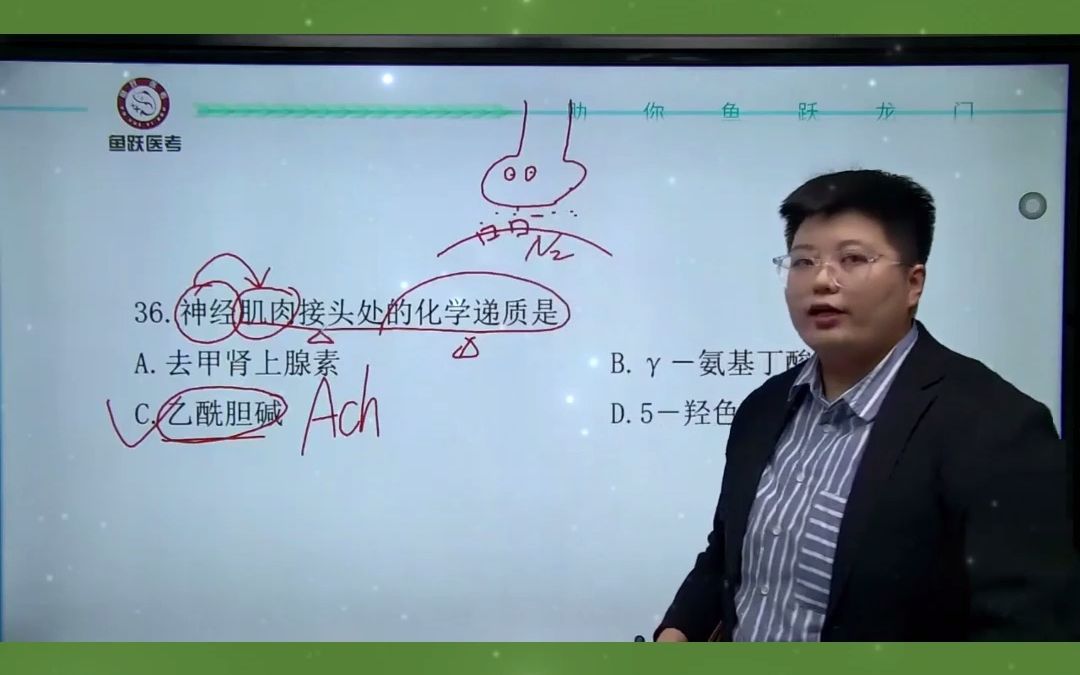 助你鱼跃龙门
鱼跃医考
N2
36.神经肌肉接头处的化学递质是
A.去甲肾上腺素
B.γ－氨基丁酸
C.乙酰胆碱
Ach
D.5－羟色